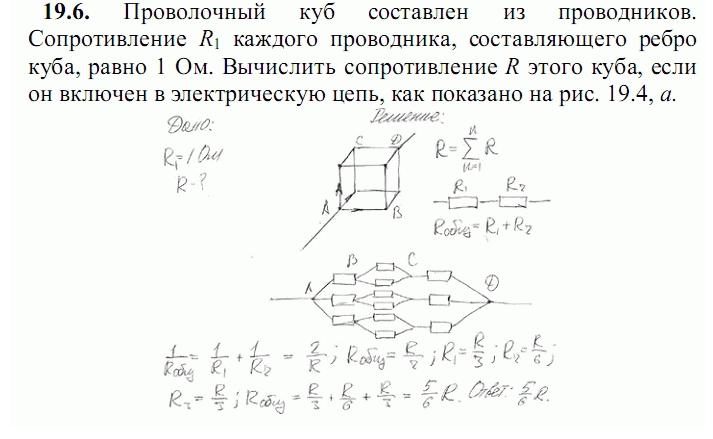 19.6. Проволочный куб составлен из проводников.
Сопротивление R₁ каждого проводника, составляющего ребро
куба, равно 1 Ом. Вычислить сопротивление R этого куба, если
он включен в электрическую цепь, как показано на рис. 19.4, а.
Дано:
Решение:
R₁=1 Ом
R-?
C D
A
A B
R=∑R
R₁ R₂
Rобщ=R₁+R₂
A B C D
1/Rобщ = 1/R₁ + 1/R₂ = 2/R; Rобщ=R/2; R₁=R/3; R₂=R/6;
R₃=R/3; Rобщ = R/3 + R/6 + R/3 = 5/6 R. Ответ: 5/6 R.